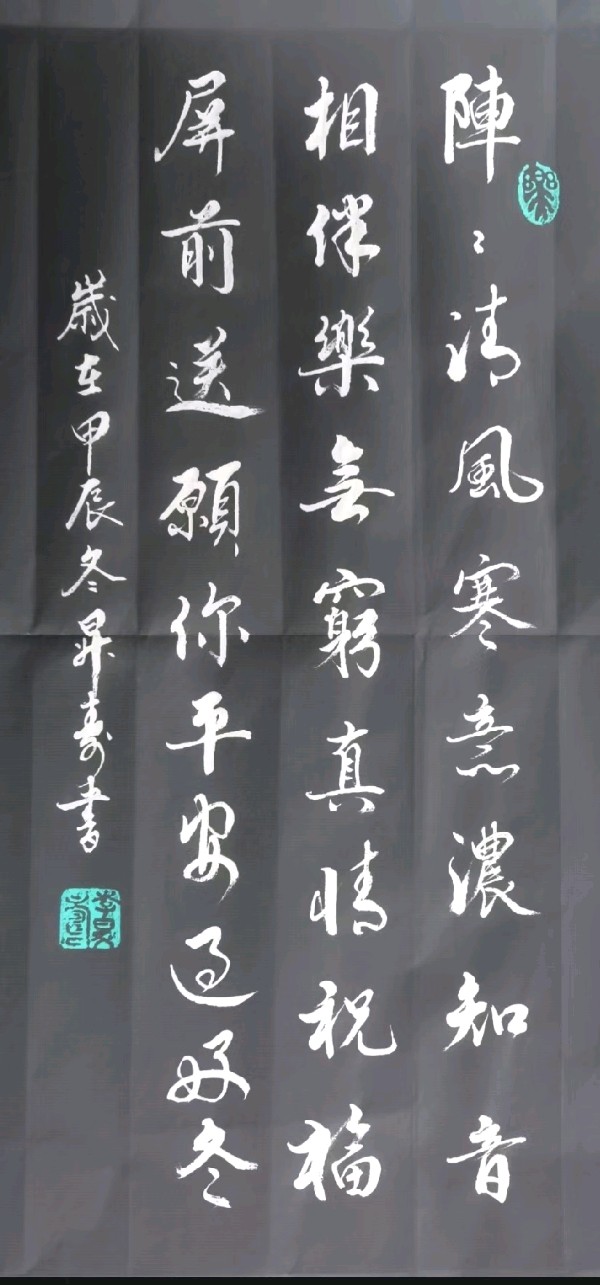 陣〻清風寒意濃知音
相伴樂無窮真情祝福
屏前送願你平安過好冬
歲在甲辰冬昇壽書